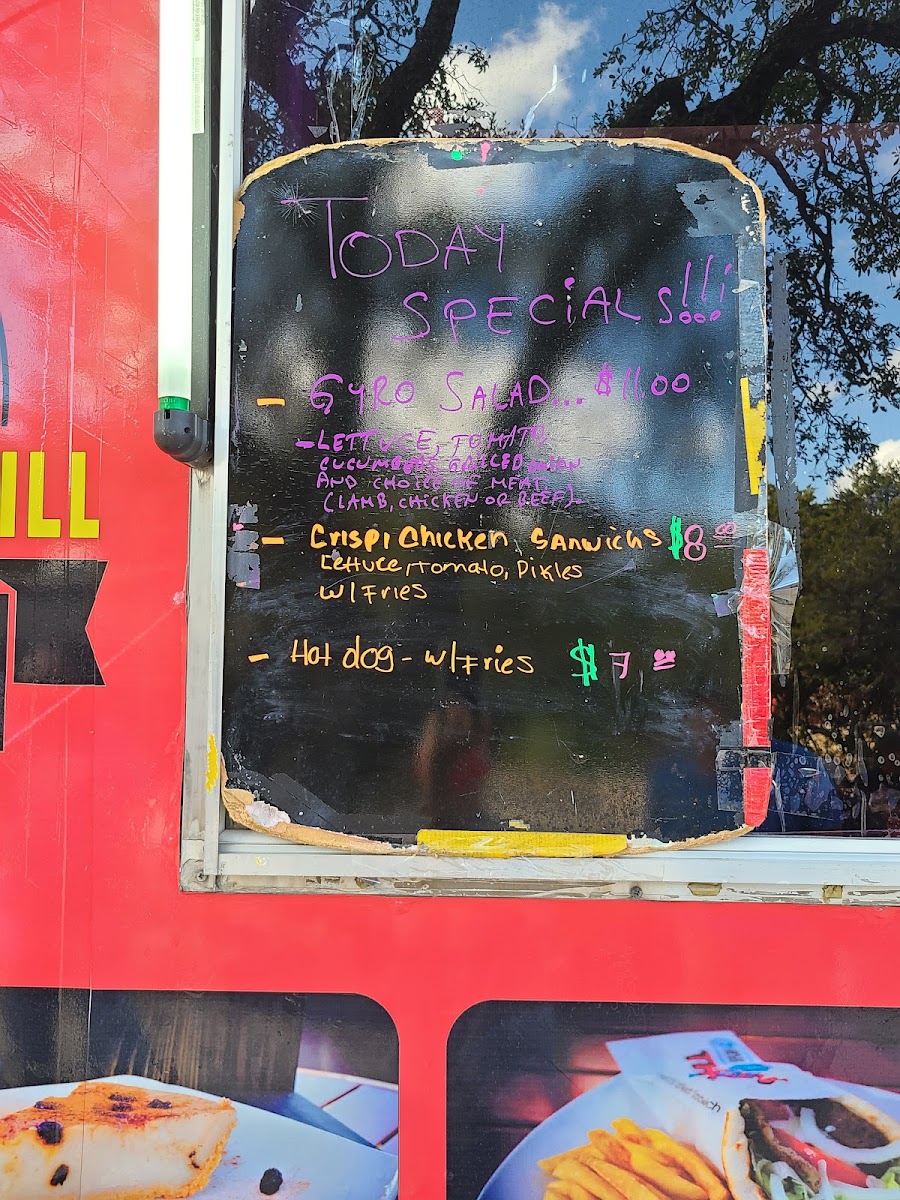 TODAY
SPECiALS!!!
- GYRO SALAD... $11.00
- LETTUCE, TOMATO,
CUCUMBERS, GRILLED ONION
AND CHOICE OF MEAT
(LAMB, CHICKEN OR BEEF).
- Crispi Chicken SANWichs $8 00
Lettuce, Tomato, Pikles
W/Fries
- Hot dog - W/Fries $7 00
ILL